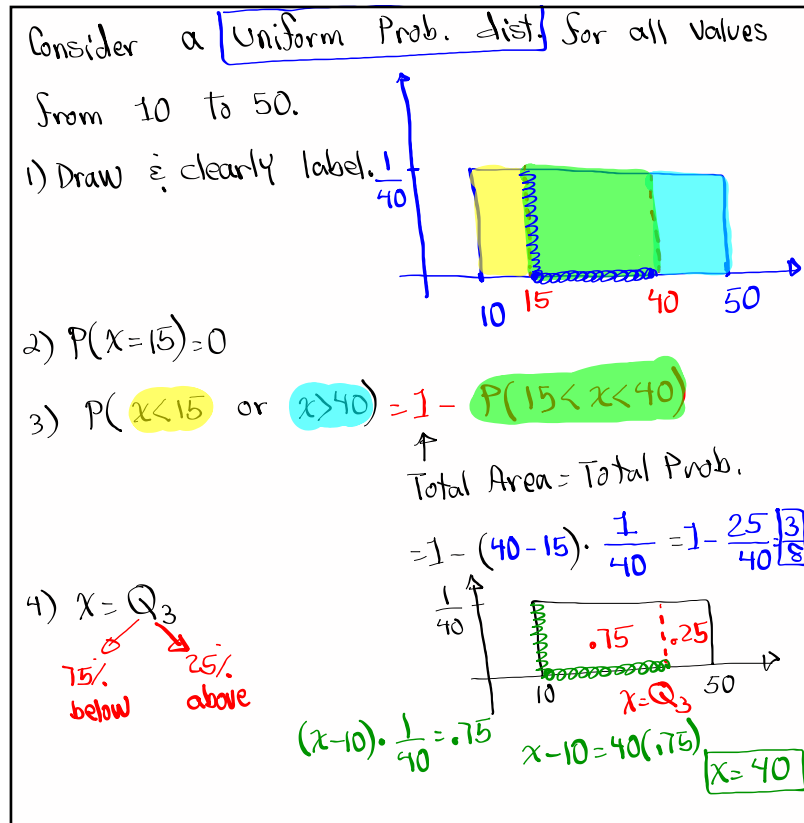 Consider a Uniform Prob. dist. for all values
from 10 to 50.
1) Draw & clearly label.
1/40
10 15 40 50
2) P(x=15)=0
3) P(x<15 or x>40) = 1 - P(15<x<40)
↑
Total Area = Total Prob.
=1-(40-15)·1/40=1-25/40=3/8
4) x=Q₃
75% below
25% above
1/40
.75 .25
10 x=Q₃ 50
(x-10)·1/40=.75 x-10=40(.75)
x=40